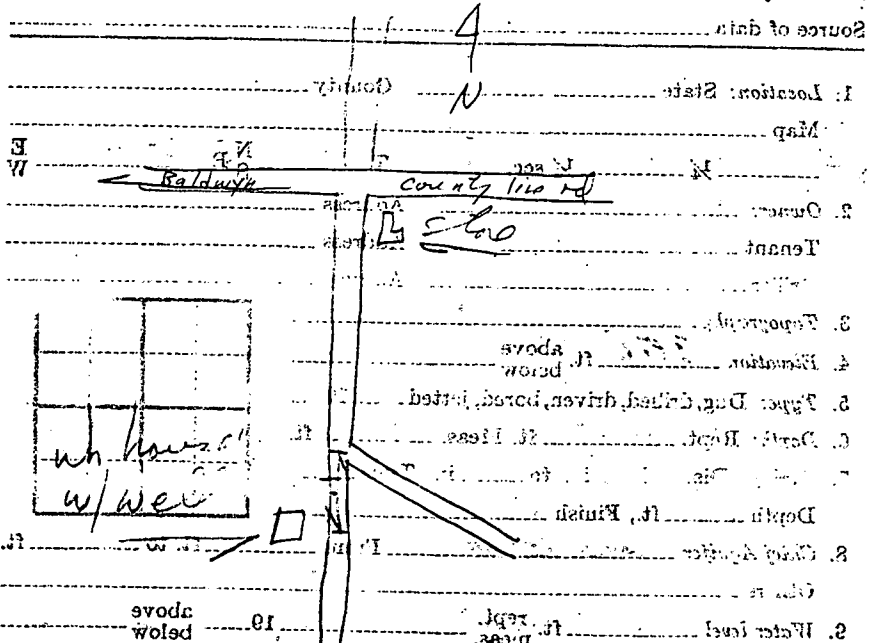 Source of data
N
1: Location: State County
Map
¼ ¼ sec T N R E W
Baldwyn county line rd
2. Owner: Address
Tenant Address
3. Topography
4. Elevation ft. above below
5. Type: Dug, drilled, driven, bored, jetted
6. Depth: Rept. ft. Meas. ft.
wh house
w/ well
Depth ft., Finish
8. Chief Aquifer
9. Water level ft. rept. meas. 19 above below